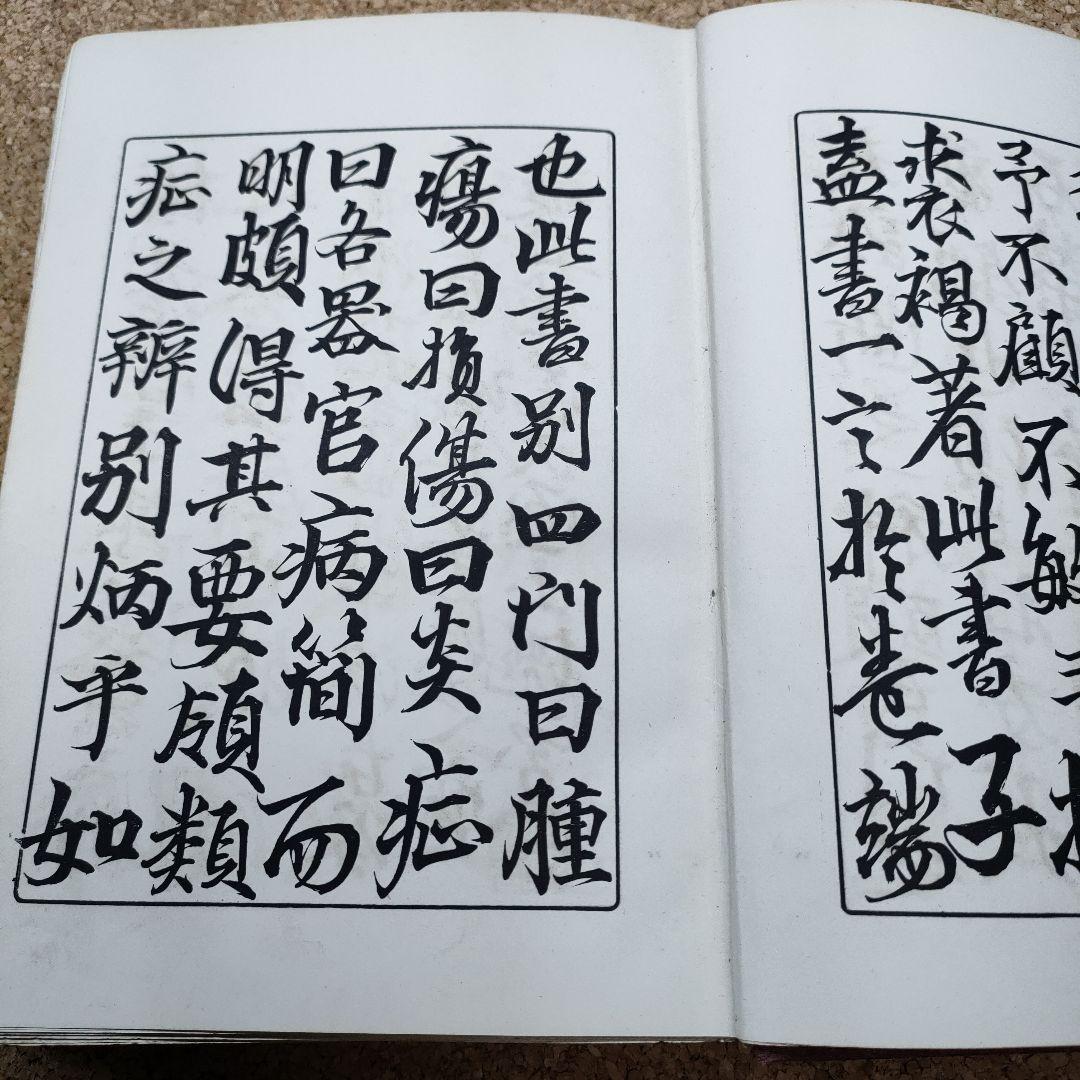 予不顧不敏
裘褐著此書子
盍書一言於卷端
也此書別四門曰腫
瘍曰損傷曰炎症
曰各器官病簡而
明頗得其要領類
症之辨別炳乎如